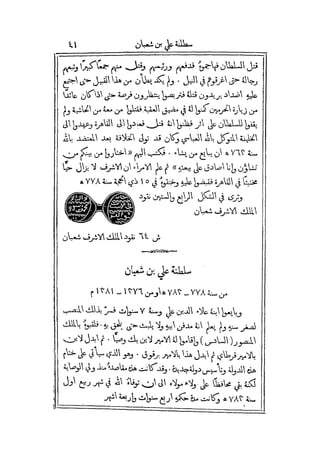 سلطنة علي بن شعبان ٤١
قتل السلطان فهاجموهُ فدفعهم وردهم وقتل منهم جمعًا كبيرًا وتبعهم
رجالهُ حتى اغرقوهم في النيل. ولم يكد يطمأن من هذا القبيل حتى اجتمع
عليهِ اضداد يريدون قتلهُ فتربصوا ينتظرون فرصة حتى اذا كان عائدًا
من زيارة الحرمين كمنوا لهُ في مضيق العقبة فقتلوا من معهُ من الحاشية ولم
يقفوا للسلطان على أثر فظنوا انهُ قتل فعادوا الى القاهرة وعهدوا الى
الخليفة المتوكل بالله العباسي وكان قد تولى الخلافة بعد المعتضد بالله
سنة ٧٦٣ هـ ان يبايع من يشاء. فكتب اليهم «اختاروا من بينكم من
تشاؤون وانا اصادق على بيعتهِ» ثم علم الامراء ان الاشرف لا يزال حيًّا
مختبئًا في القاهرة فقبضوا عليهِ وخنقوهُ في ١٥ ذي الحجة سنة ٧٧٨ هـ
وترى في الشكل الرابع والستين نقود
الملك الاشرف شعبان
ش ٦٤ نقود الملك الاشرف شعبان
سلطنة علي بن شعبان
من سنة ٧٧٨ – ٧٨٣ هـ او من ١٣٧٦ – ١٣٨١ م
وبايعوا ابنهُ علاء الدين علي وسنهُ ٧ سنوات فسر بذلك المنصب
لصغر سنهِ ولم يعلم انهُ مدفن ابيهِ ولا يلبث حتى يلحق بهِ. فلقبوهُ بالملك
المنصور (السادس) واقاموا لهُ الامير لابن بك وصيًّا. ثم ابدل لابن
بالامير قرطاي ثم ابدل هذا بالامير برقوق. وهو الذي سيأتي على ختام
هذه الدولة وتأسيس دولة جديدة. وقد كانت هذه مقاصدهُ منذ ولي الوصاية
لكنهُ بقي محافظًا على ولاء مولاهُ الى ان توفاهُ الله في شهر ربيع اول
سنة ٧٨٣ هـ وكانت مدة حكمهِ اربع سنوات واربعة اشهر